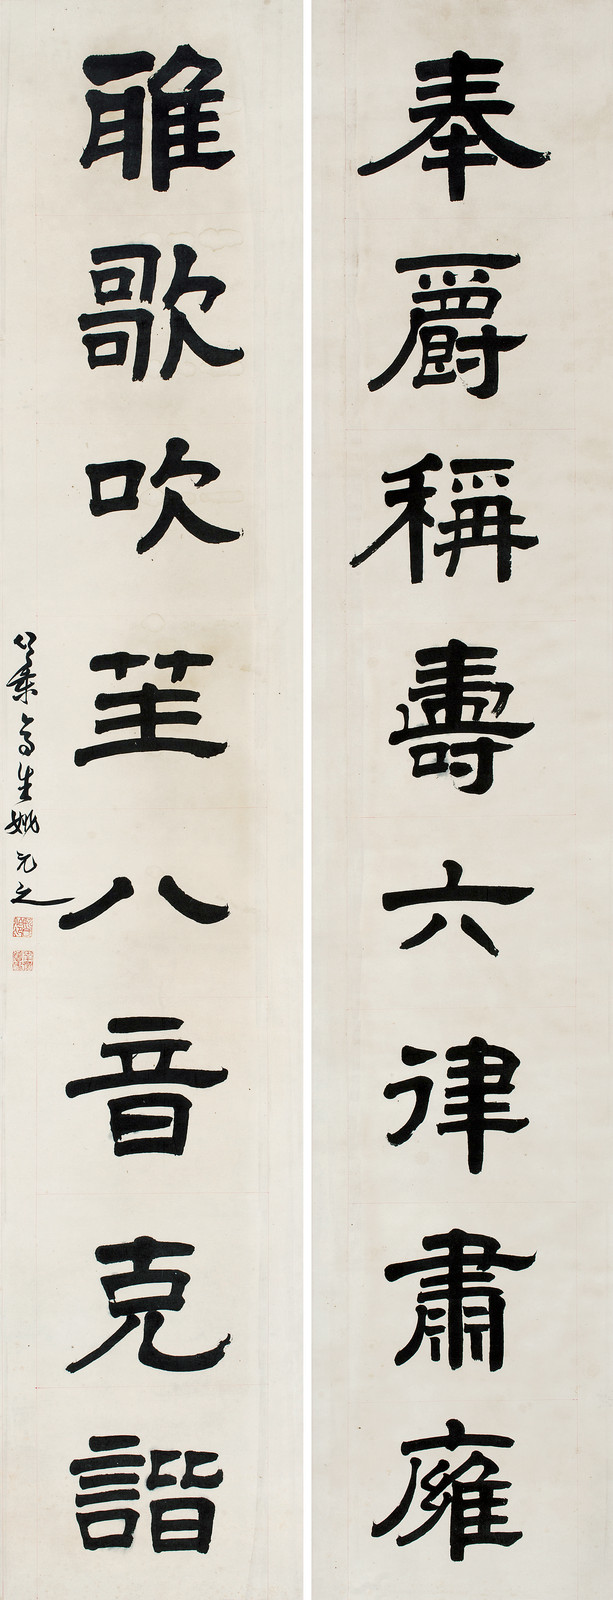 奉爵稱壽六律肅雍
雅歌吹笙八音克諧
竹葉亭生姚元之